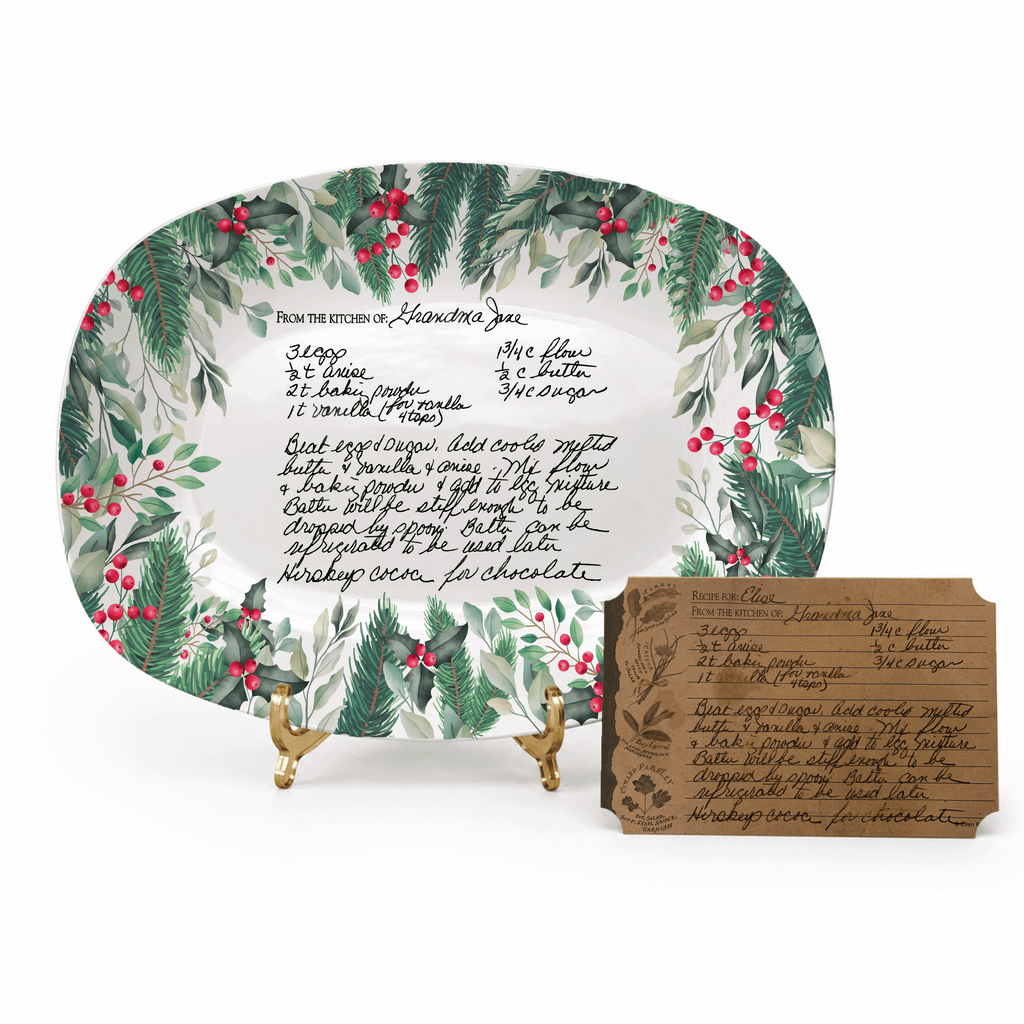 FROM THE KITCHEN OF: Grandma Jane
3 eggs
1 3/4 c flour
1/2 t anise
1/2 c butter
2 t baking powder
3/4 c sugar
1 t vanilla (for vanilla
4 tsps)
Beat eggs & sugar. Add cooled melted
butter & vanilla & anise. Mix flour
& baking powder & add to egg mixture
Batter will be stiff enough to be
dropped by spoon. Batter can be
refrigirated to be used later
Hersheys cocoa for chocolate
RECIPE FOR: Elise
FROM THE KITCHEN OF: Grandma Jane
3 eggs
1 3/4 c flour
1/2 t anise
1/2 c butter
2 t baking powder
3/4 c sugar
1 t vanilla (for vanilla
4 tsps)
Beat eggs & sugar. Add cooled melted
butter & vanilla & anise. Mix flour
& baking powder & add to egg mixture
Batter will be stiff enough to be
dropped by spoon. Batter can be
refrigirated to be used later
Hersheys cocoa for chocolate
SORREL
CHIVES
BAY LAUREL
CURLED PARSLEY
FOR SALAD,
SOUP, FISH, SAUCE,
GARNISH